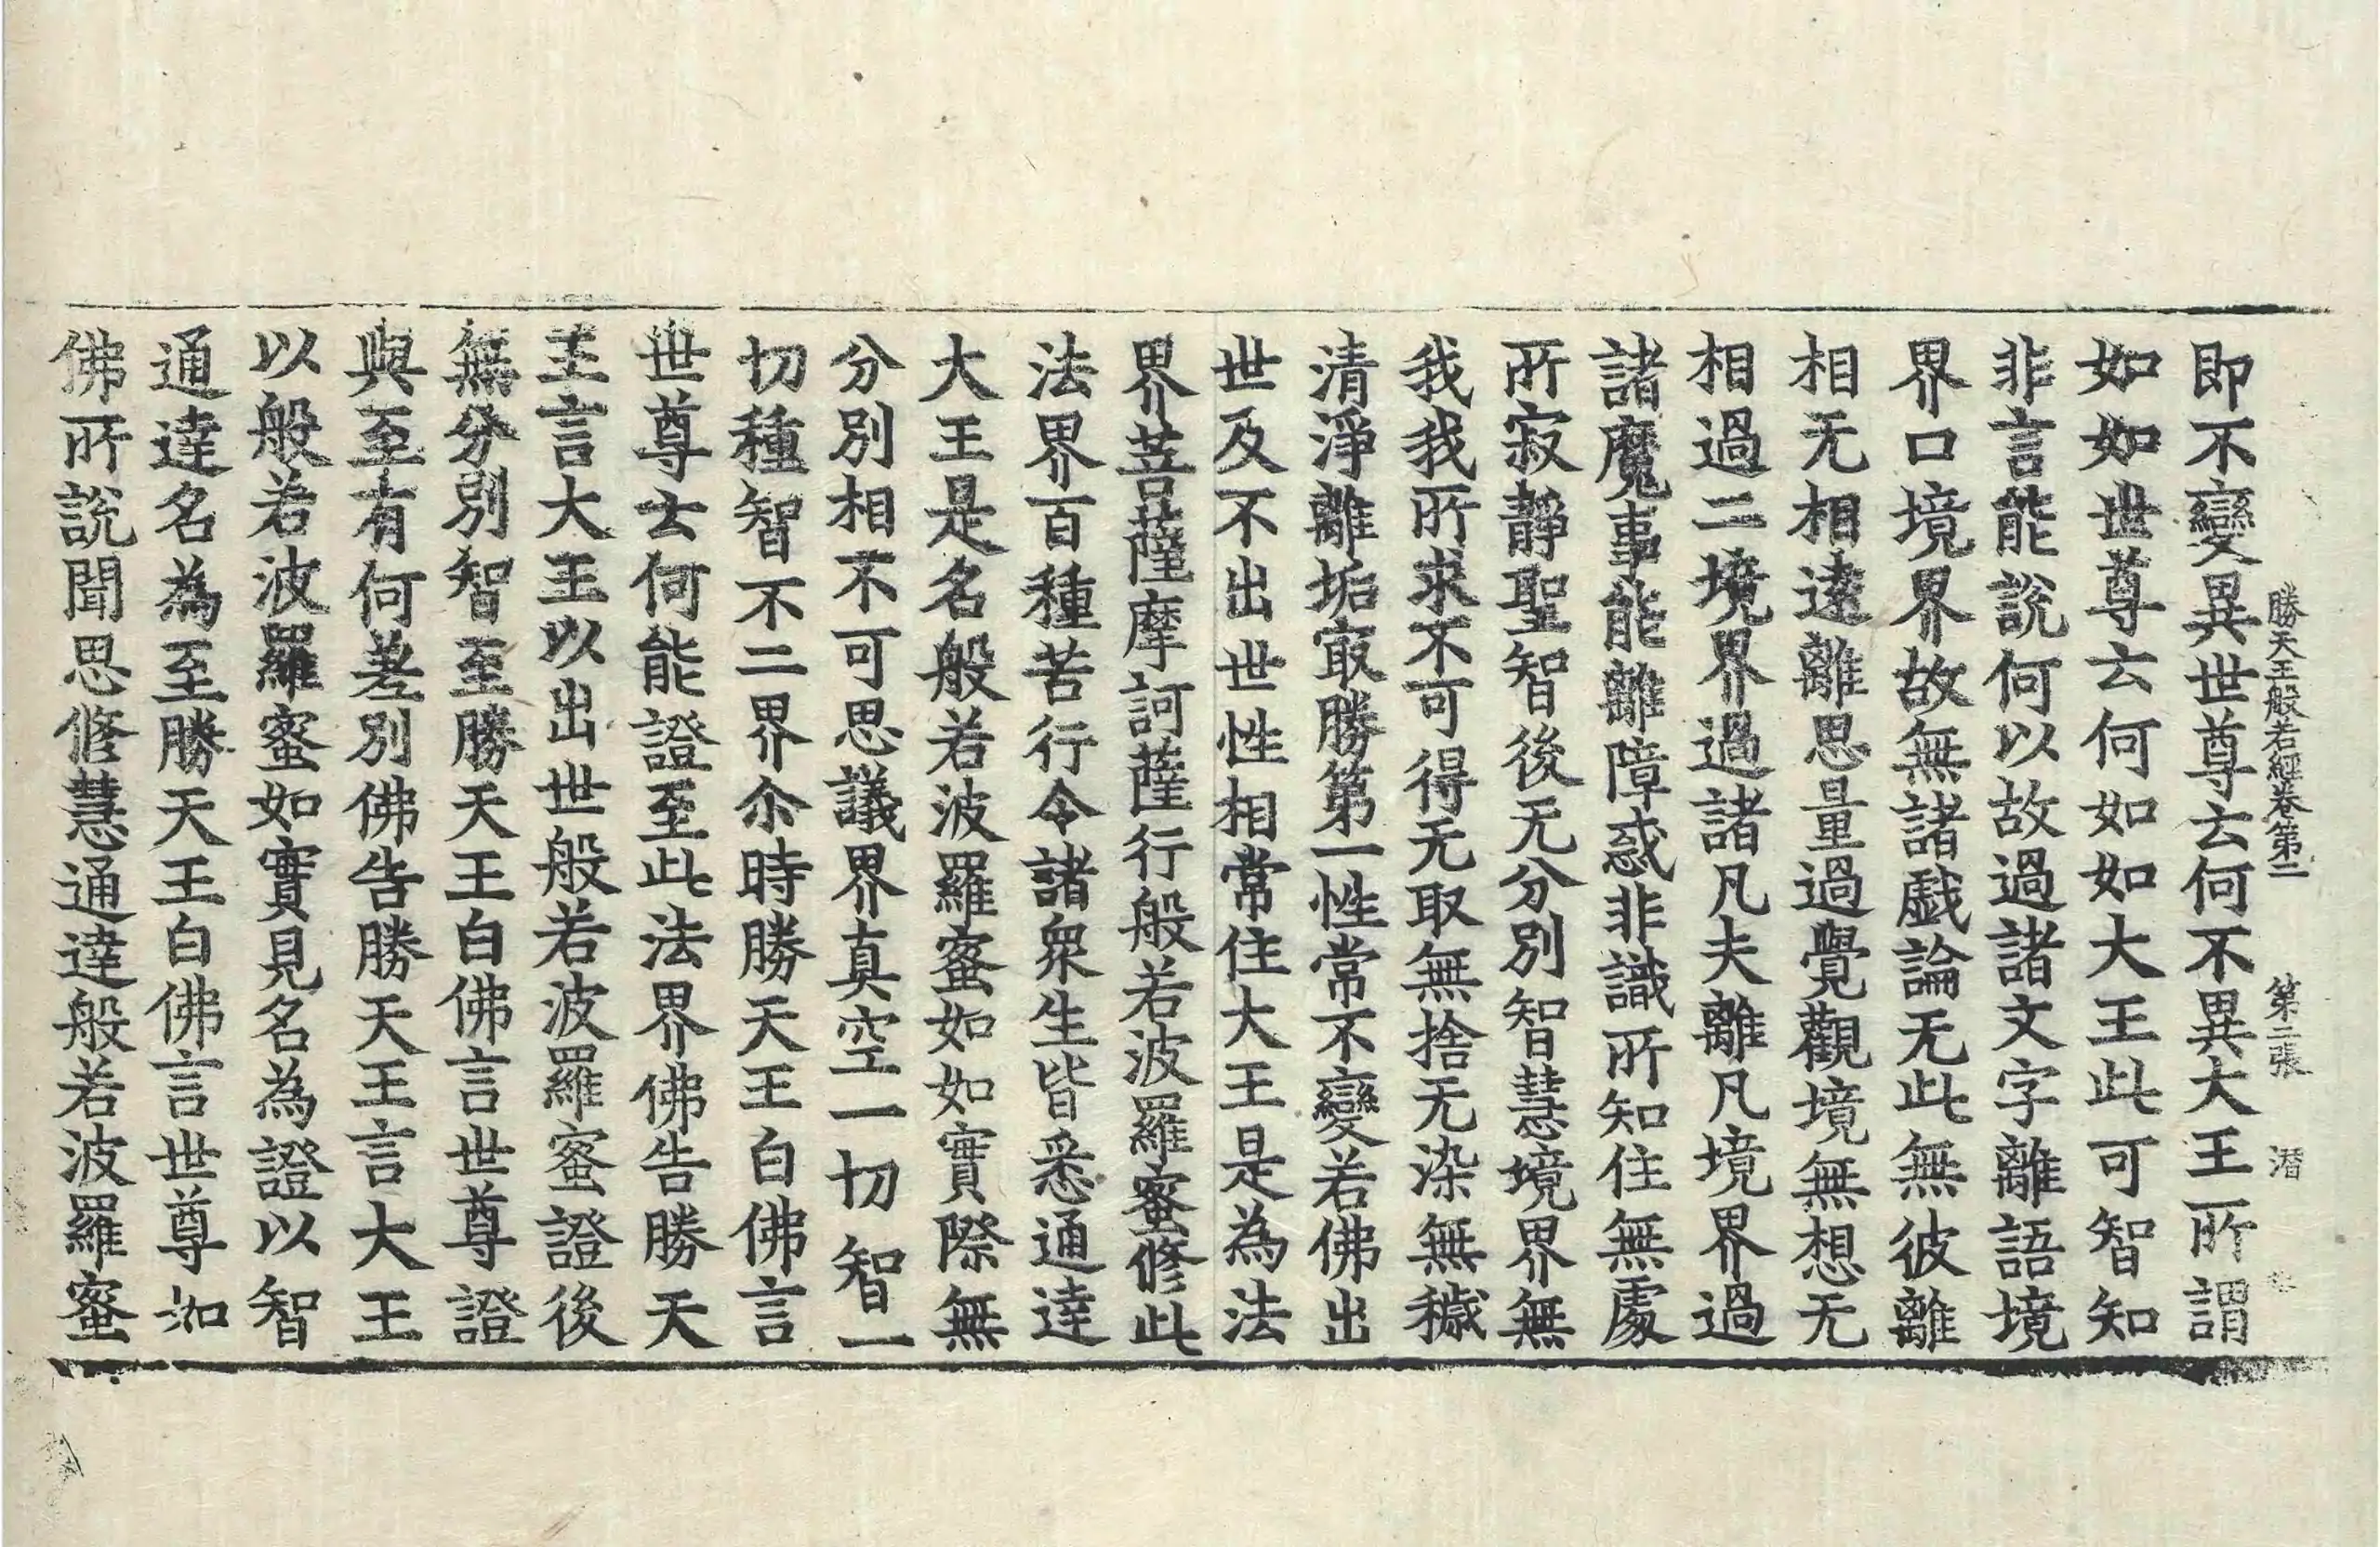 勝天王般若經卷第二 第二張 潜
即不變異世尊云何不異大王所謂
如如世尊云何如如大王此可智知
非言能說何以故過諸文字離語境
界口境界故無諸戱論无此無彼離
相无相遠離思量過覺觀境無想无
相過二境界過諸凡夫離凡境界過
諸魔事能離障惑非識所知住無處
所寂靜聖智後无分別智慧境界無
我我所求不可得无取無捨无染無穢
清淨離垢㝡勝第一性常不變若佛出
世及不出世性相常住大王是為法
界菩薩摩訶薩行般若波羅蜜修此
法界百種苦行令諸衆生皆悉通達
大王是名般若波羅蜜如如實際無
分別相不可思議界真空一切智一
切種智不二界尒時勝天王白佛言
世尊云何能證至此法界佛告勝天
王言大王以出世般若波羅蜜證後
無分別智至勝天王白佛言世尊證
與至有何差別佛告勝天王言大王
以般若波羅蜜如實見名為證以智
通達名為至勝天王白佛言世尊如
佛所說聞思修慧通達般若波羅蜜